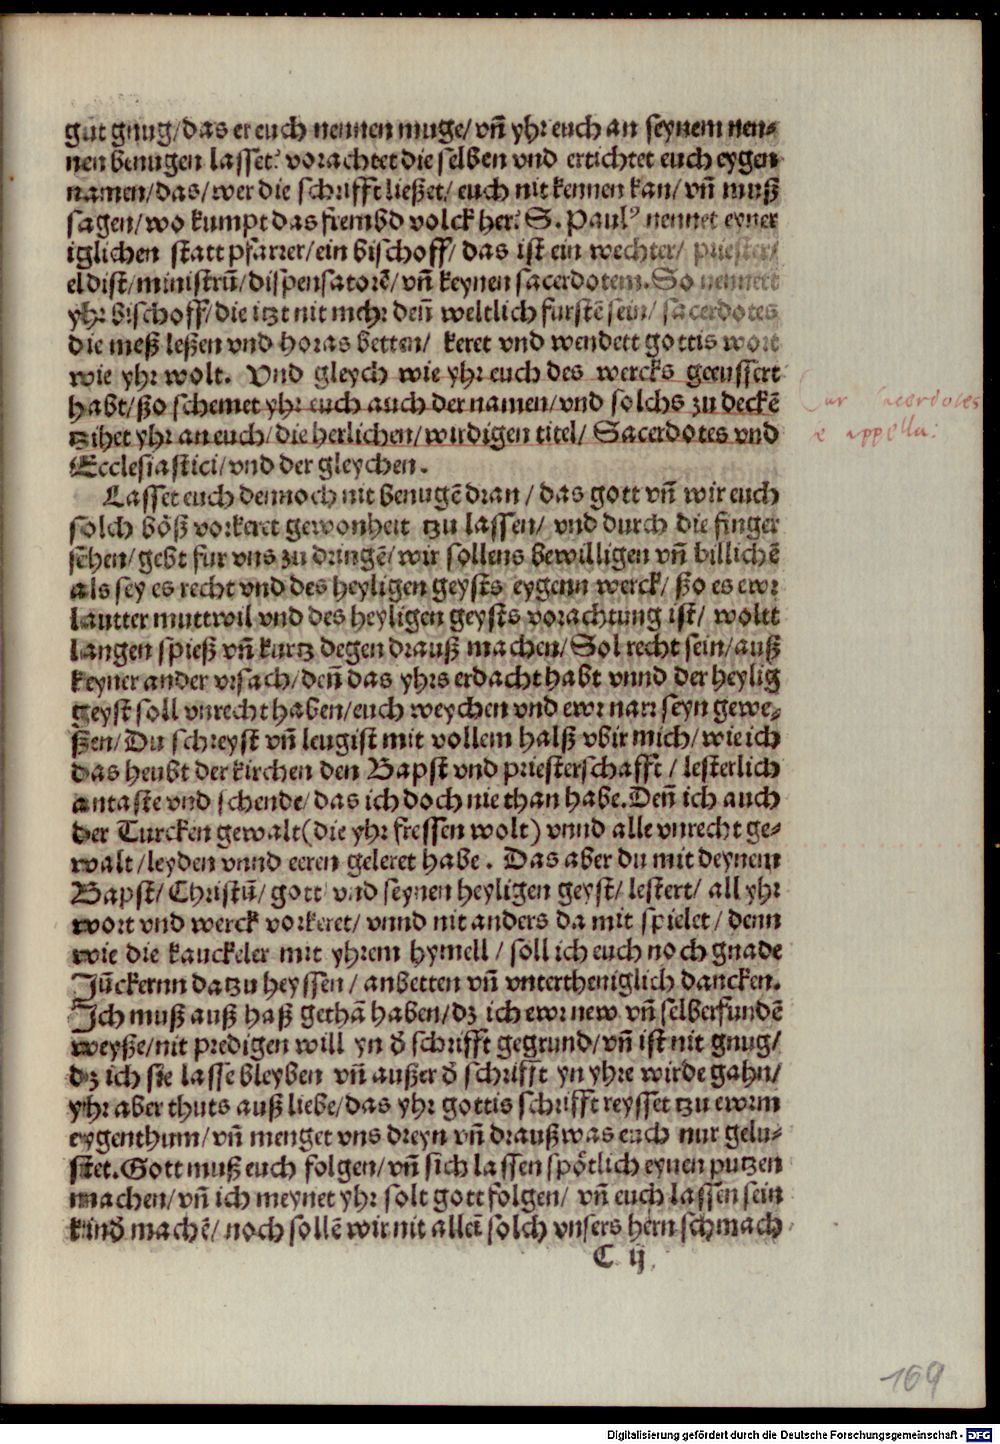 gut gnug/das er euch nennen muge/vñ yhr euch an seynem nen⸗
nen benugen lasset? vorachtet die selben vnd ertichtet euch eygen
namen/das/wer die schrifft ließet/euch nit kennen kan/vñ muß
sagen/wo kumpt das frembd volck her? S. Paulꝰ nennet eyner
iglichen statt pfarrer/ein bischoff/das ist ein wechter/priester/
eldist/ministrũ/dispensatorẽ/vñ keynen sacerdotem. So nennett
yhr bischoff/die itzt nit mehr deñ weltlich furstẽ sein/sacerdotes
die meß leßen vnd horas betten/ keret vnd wendett gottis wort
wie yhr wolt. Vnd gleych wie yhr euch des wercks geeussert
habt/ßo schemet yhr euch auch der namen/vnd solchs zu deckẽ
tzihet yhr an euch/die herlichen/wirdigen titel/Sacerdotes vnd
Ecclesiastici/vnd der gleychen.
Cur sacerdotes
se appella:
Lasset euch dennoch nit benugẽ dran/das gott vñ wir euch
solch böß vorkeret gewonheit tzu lassen/ vnd durch die finger
sehen/gebt fur vns zu dringẽ/wir sollens bewilligen vñ billichẽ
als sey es recht vnd des heyligen geysts eygenn werck/ ßo es ewr
lautter muttwil vnd des heyligen geysts vorachtung ist/ woltt
langen spieß vñ kurtz degen drauß machen/Sol recht sein/auß
keyner ander vrsach/deñ das yhrs erdacht habt vnnd der heylig
geyst soll vnrecht haben/euch weychen vnd ewr narr seyn gewe⸗
ßen/Du schreyst vñ leugist mit vollem halß vbir mich/wie ich
das heubt der kirchen den Bapst vnd priesterschafft/lesterlich
antaste vnd schende/das ich doch nie than habe. Deñ ich auch
der Turcken gewalt(die yhr fressen wolt) vnnd alle vnrecht ge⸗
walt/leyden vnnd eeren geleret habe. Das aber du mit deynem
Bapst/Christũ/gott vnd seynen heyligen geyst/lestert/ all yhr
wort vnd werck vorkeret/vnnd nit anders da mit spielet/denn
wie die kauckeler mit yhrem hymell/soll ich euch noch gnade
Jũckernn datzu heyssen/anbetten vñ vnterthenigich dancken.
Ich muß auß haß gethã haben/dz ich ewr new vñ selberfundẽ
weyße/nit predigen will yn d̊ schrifft gegrund/vñ ist nit gnug/
dz ich sie lasse bleyben vñ außer d̊ schrifft yn yhre wirde gahn/
yhr aber thuts auß liebe/das yhr gottis schrifft reysset tzu ewrm
eygenthum/vñ menget vns dreyn vñ drauß was euch nur gelu⸗
stet. Gott muß euch folgen/vñ sich lassen spötlich eynen putzen
machen/vñ ich meynet yhr solt gott folgen/ vñ euch lassen sein
kind̊ machẽ/noch sollẽ wir nit alleĩ solch vnsers hern schmach
C ij
169
Digitalisierung gefördert durch die Deutsche Forschungsgemeinschaft - DFG